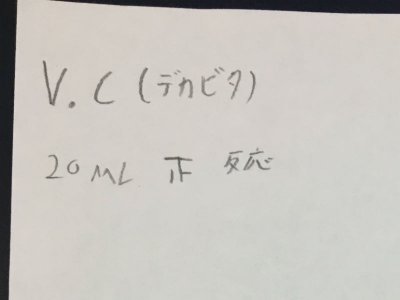 V.C (デカビタ)
20ML 正 反応